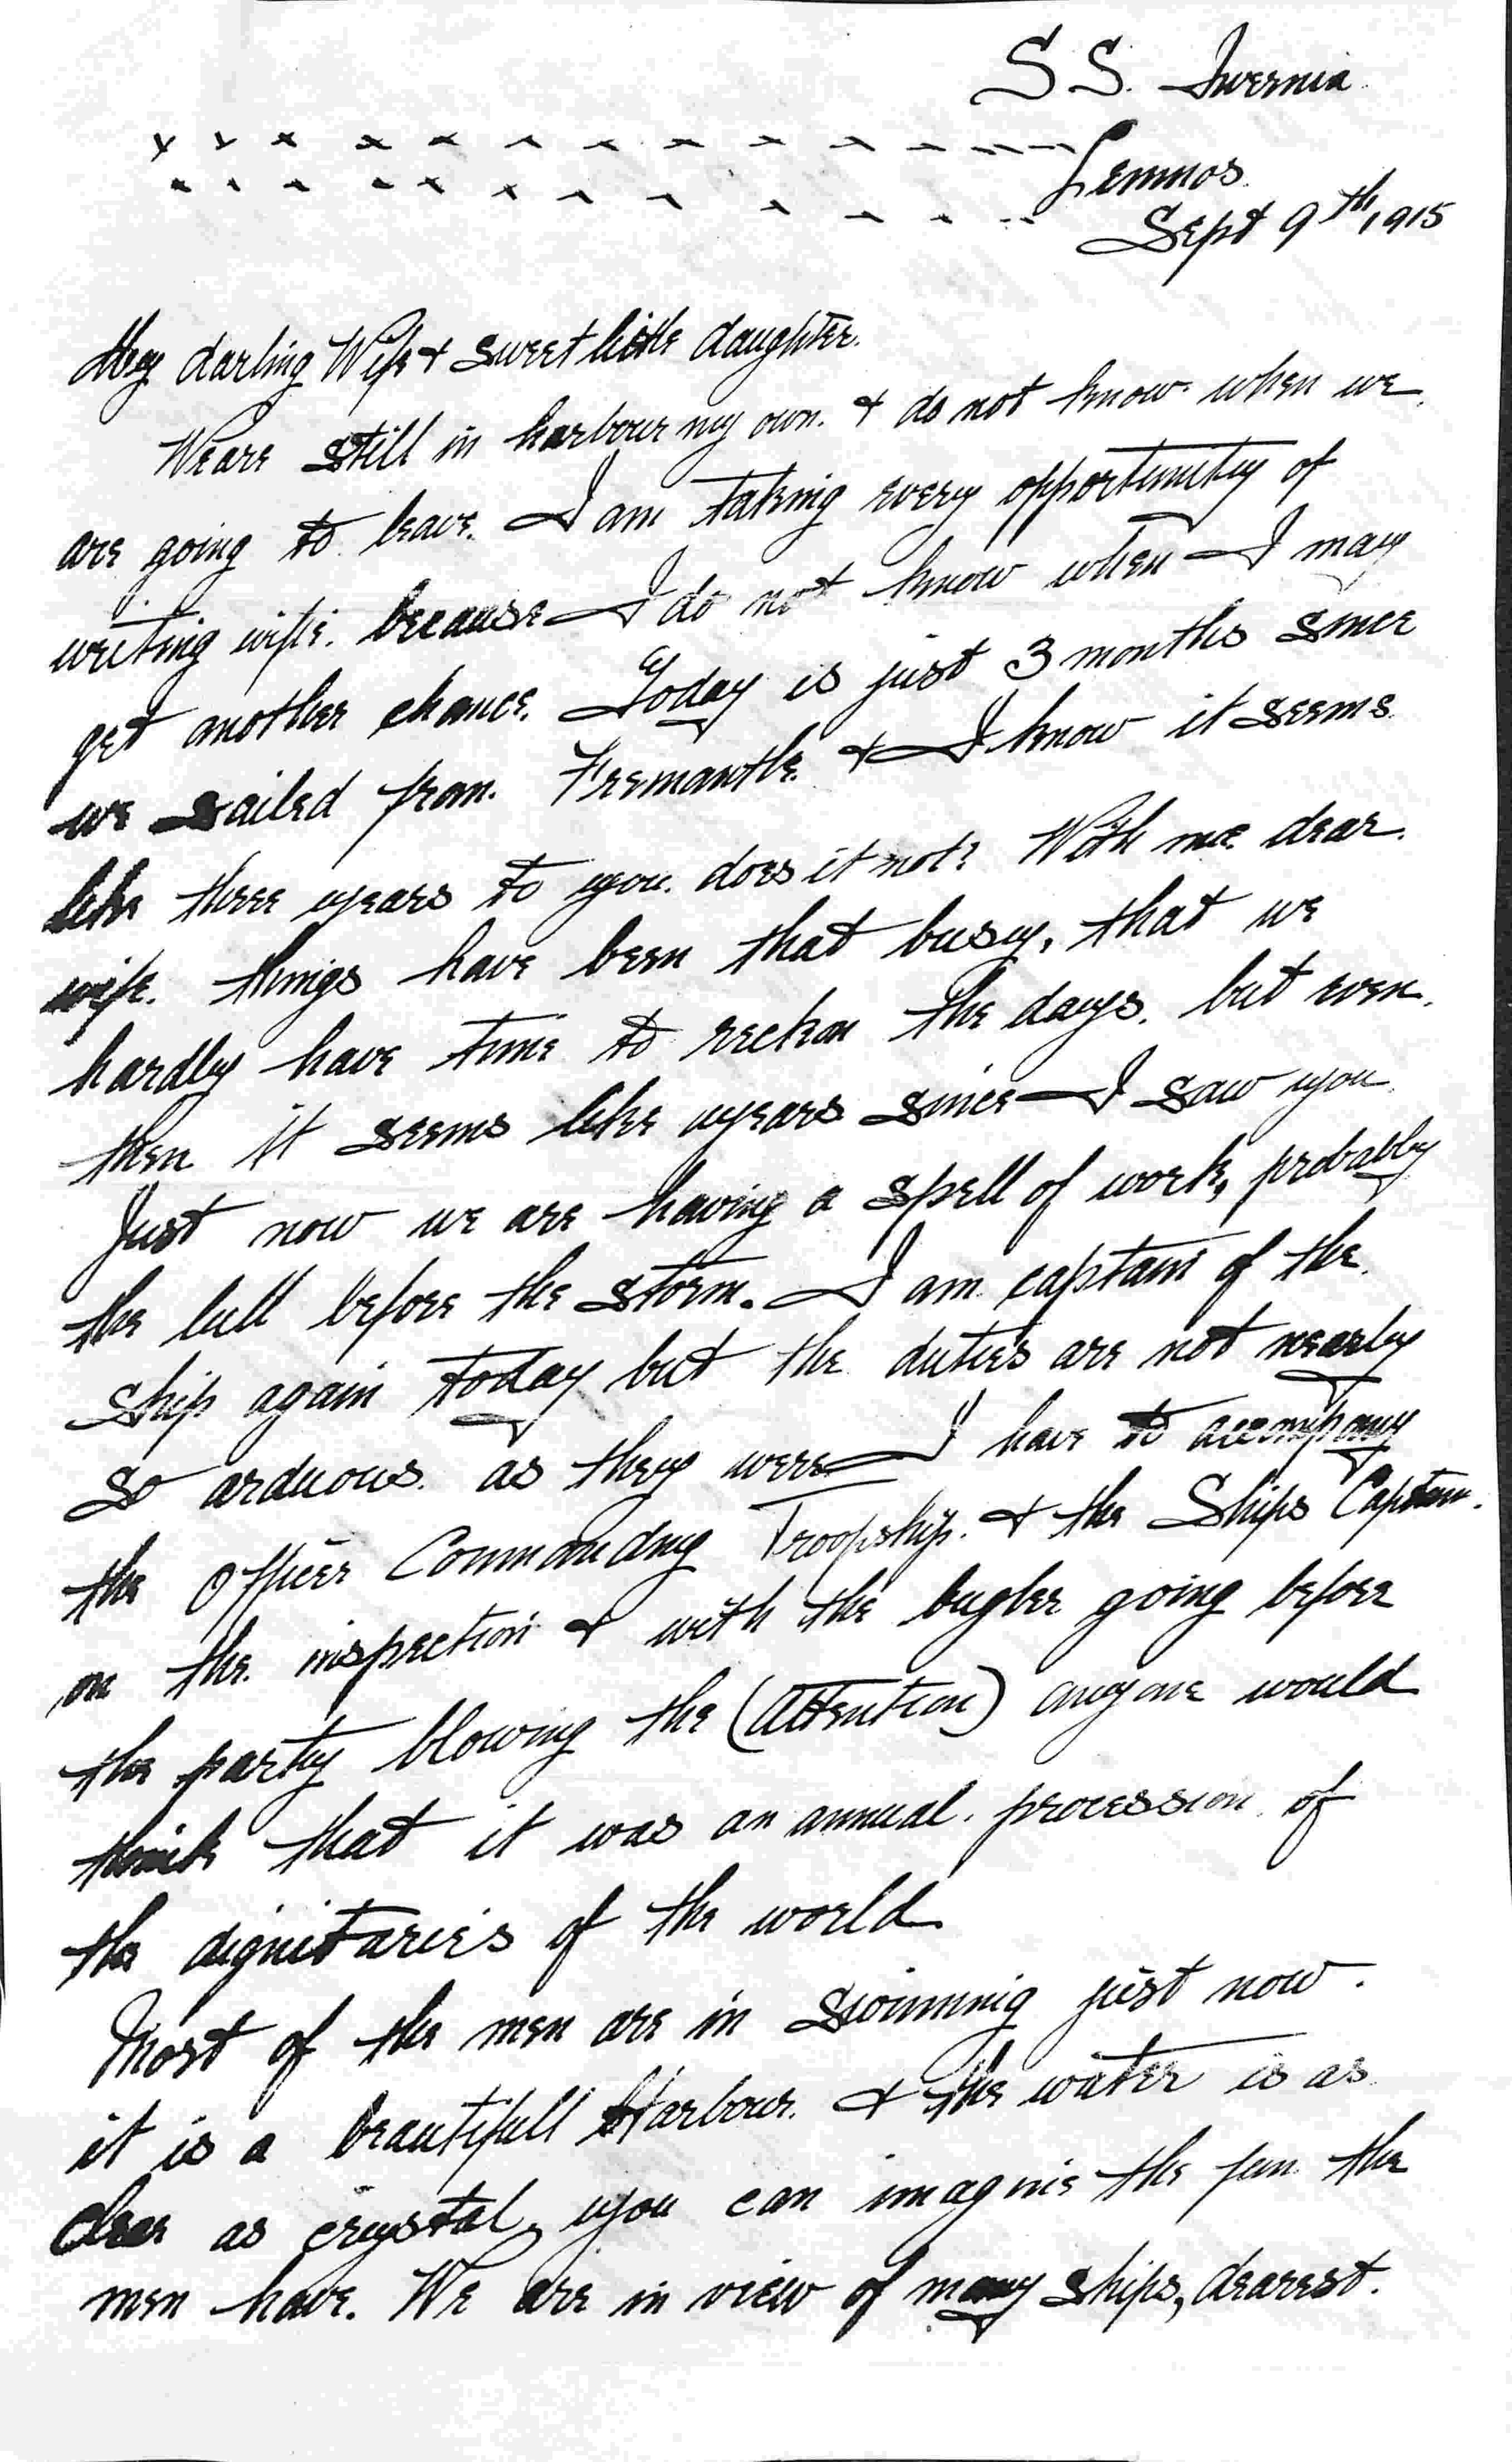 S.S. Ivernia
x x x x x x x x x x x x x x x
Lemnos.
x x x x x x x x x x x x x
Sept 9th, 1915
My darling Wife & sweet little daughter.
We are still in harbour my own. & do not know when we
are going to leave. I am taking every opportunity of
writing wifie. because I do not know when I may
get another chance. Today is just 3 months since
we sailed from Fremantle. & I know it seems
like three years to you. does it not? With me dear.
wife. things have been that busy, that we
hardly have time to reckon the days. but even.
then it seems like years since I saw you
Just now we are having a spell of work, probably
the lull before the storm. I am captain of the
ship again today but the duties are not nearly
so arduous. as they were I have to accompany
the Officer Commanding Troopship. & the Ships Captain.
on the inspection & with the bugler going before
the party blowing the (attention) anyone would
think that it was an annual. procession of
the dignitaries of the world
Most of the men are in swimming just now.
it is a beautifull Harbour. & the water is as
clear as crystal, you can imagine the fun the
men have. We are in view of many ships, dearest.